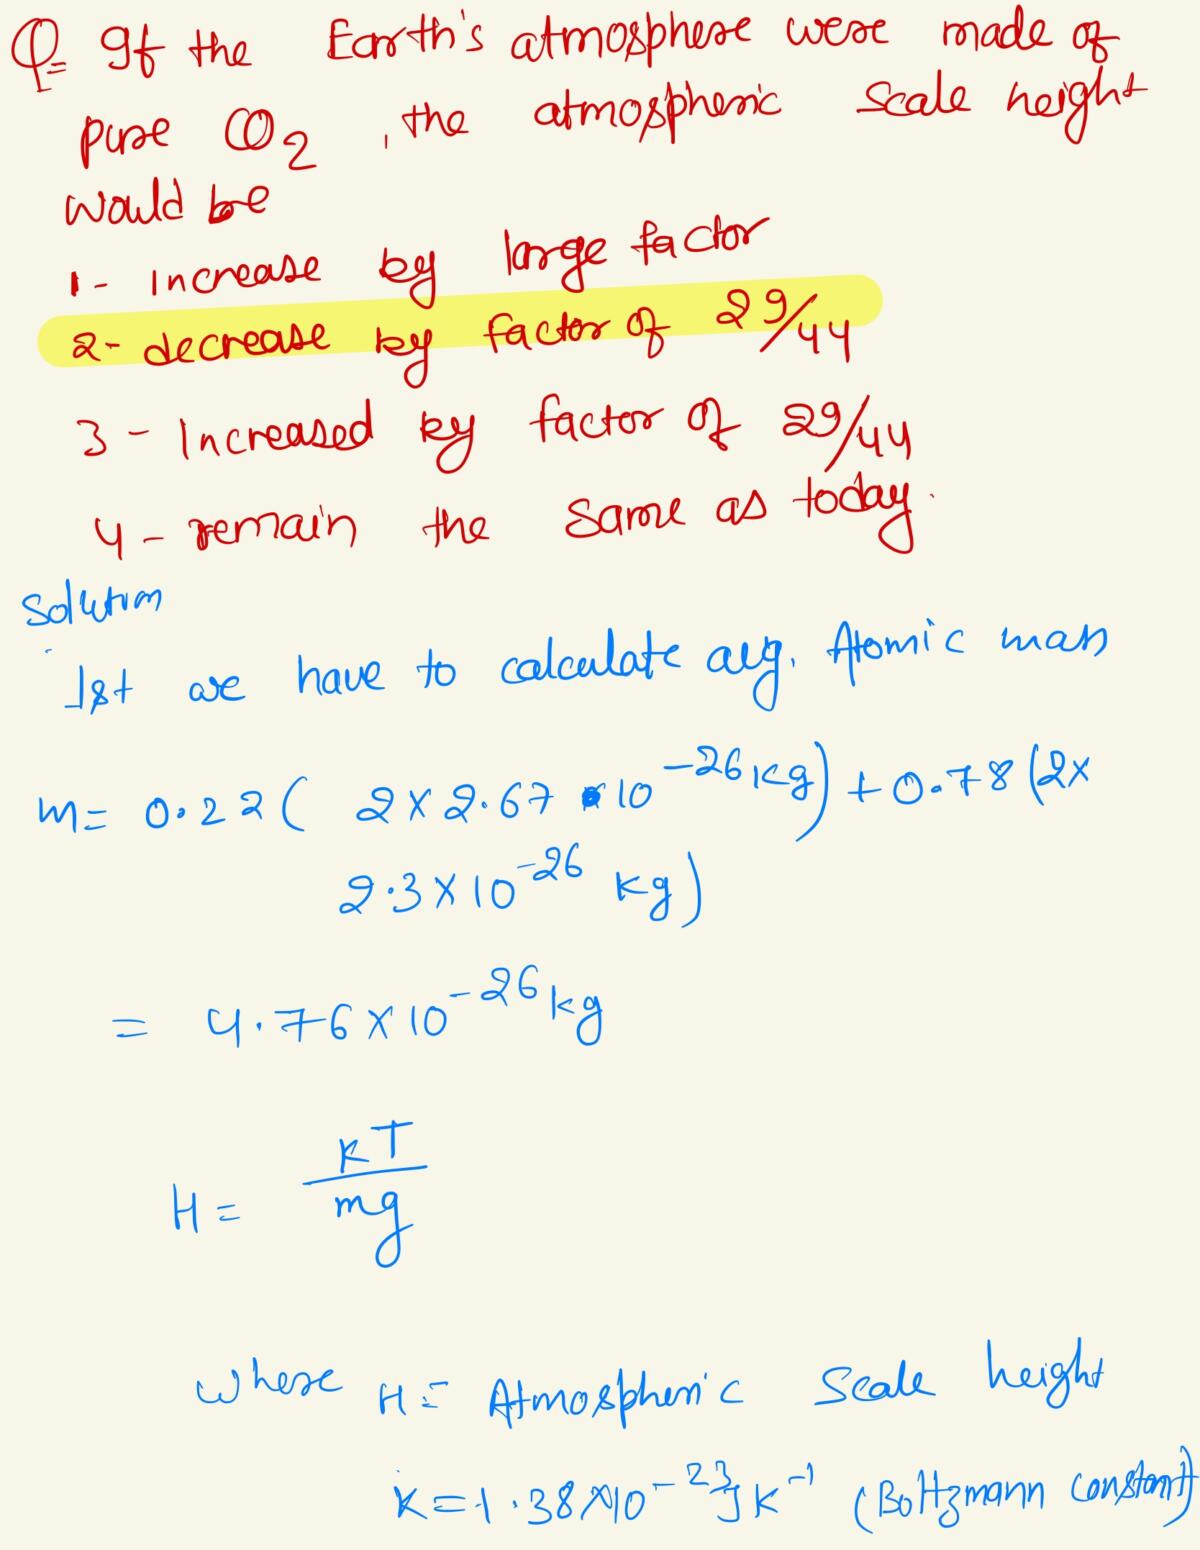 Q= If the Earth's atmosphere were made of
pure CO2, the atmospheric scale height
would be
1- Increase by large factor
2- decrease by factor of 29/44
3- Increased by factor of 29/44
4- remain the same as today.
Solution
1st we have to calculate avg. Atomic mass
m= 0.22( 2×2.67 × 10^-26 kg) + 0.78(2×
2.3×10^-26 kg)
= 4.76×10^-26 kg
H= kT/mg
where H= Atmospheric Scale height
K=1.38×10^-23 J K^-1 (Boltzmann constant)